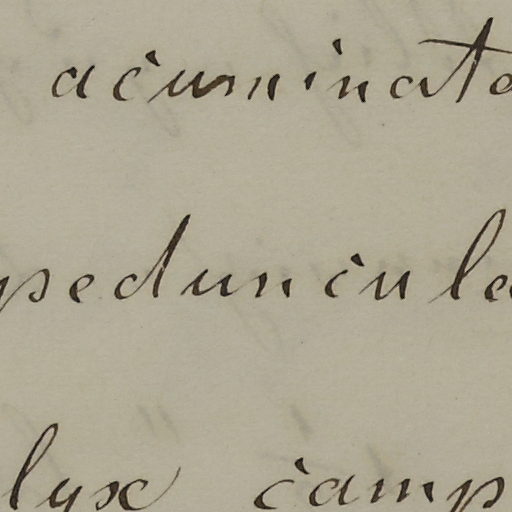 acuminate
peduncula
lyx camp